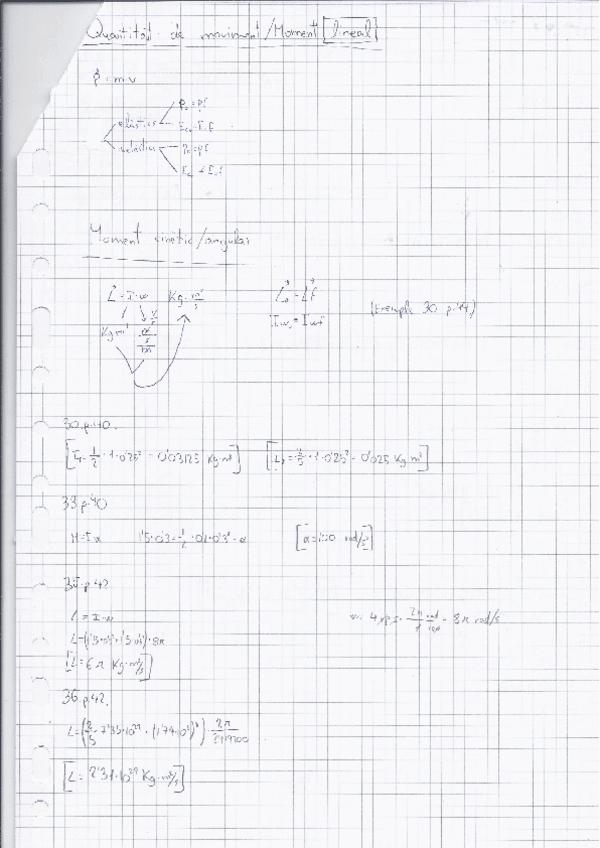 Quantitat de moviment/Moment [lineal]
p = m·v
elàstics p₀ = pf
Ec₀ = Ecf
inelàstics p₀ = pf
Ec₀ ≠ Ecf
Moment cinètic/angular
L = I·ω Kg·m²/s L₀ = Lf
Kg·m² I·ω₀ = I·ωf (Exemple 30 p.44)
30.p.40.
[I₁ = 1/2 · 1 · 0'25² = 0'03125 Kg·m²] [I₂ = 2/5 · 1 · 0'25² = 0'025 Kg·m²]
33.p.40
M = I·α 1'5·0'3 = 1/2 · 0'1 · 0'3² · α [α = 100 rad/s²]
35.p.42
L = I·ω 4 rps · 2π/1 rad/rev = 8π rad/s
·8π
[L = 6π Kg·m²/s]
36.p.42.
L = (2/5 · 7'35·10²² · (1'74·10⁶)²) · 2π/
[L = 2'31·10²⁹ Kg·m²/s]